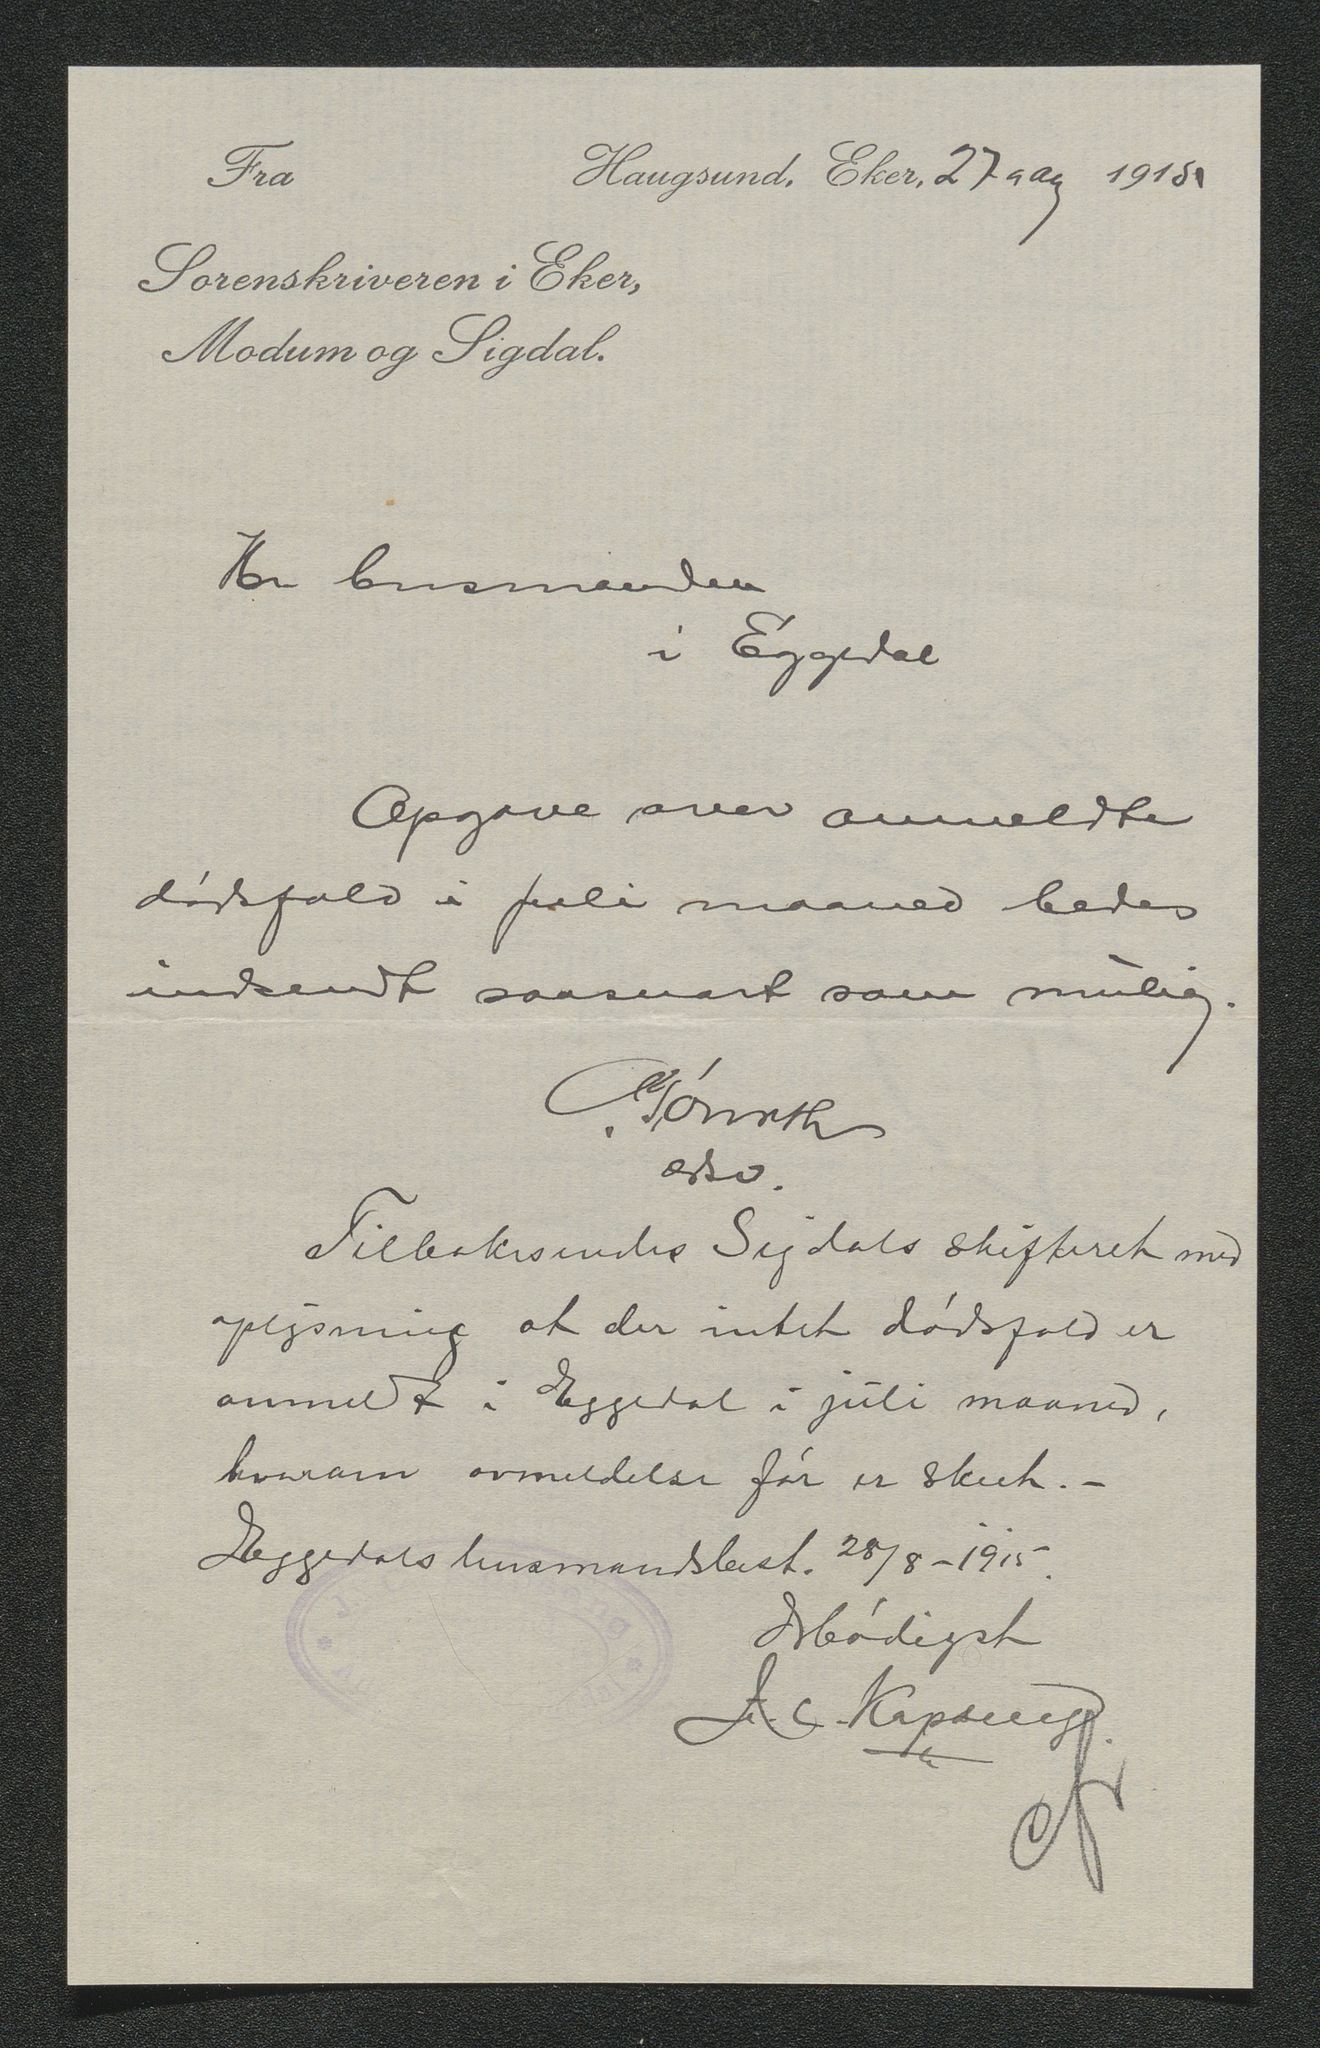 Fra
Haugsund, Eker, 27 aug 1915
Sorenskriveren i Eker,
Modum og Sigdal.
Hr lensmanden
i Eggedal
Opgave over anmeldte
dødsfald i juli maaned bedes
indsendt saasnart som mulig.
Tilbakesendes Sigdals skifteret med
oplysning at der intet dødsfald er
anmeldt i Eggedal i juli maaned,
hvorom avmeldelse før er skeet. –
Eggedals lensmandsbest. 28/8 – 1915.
Ærbødigst
A. C. Kopseng